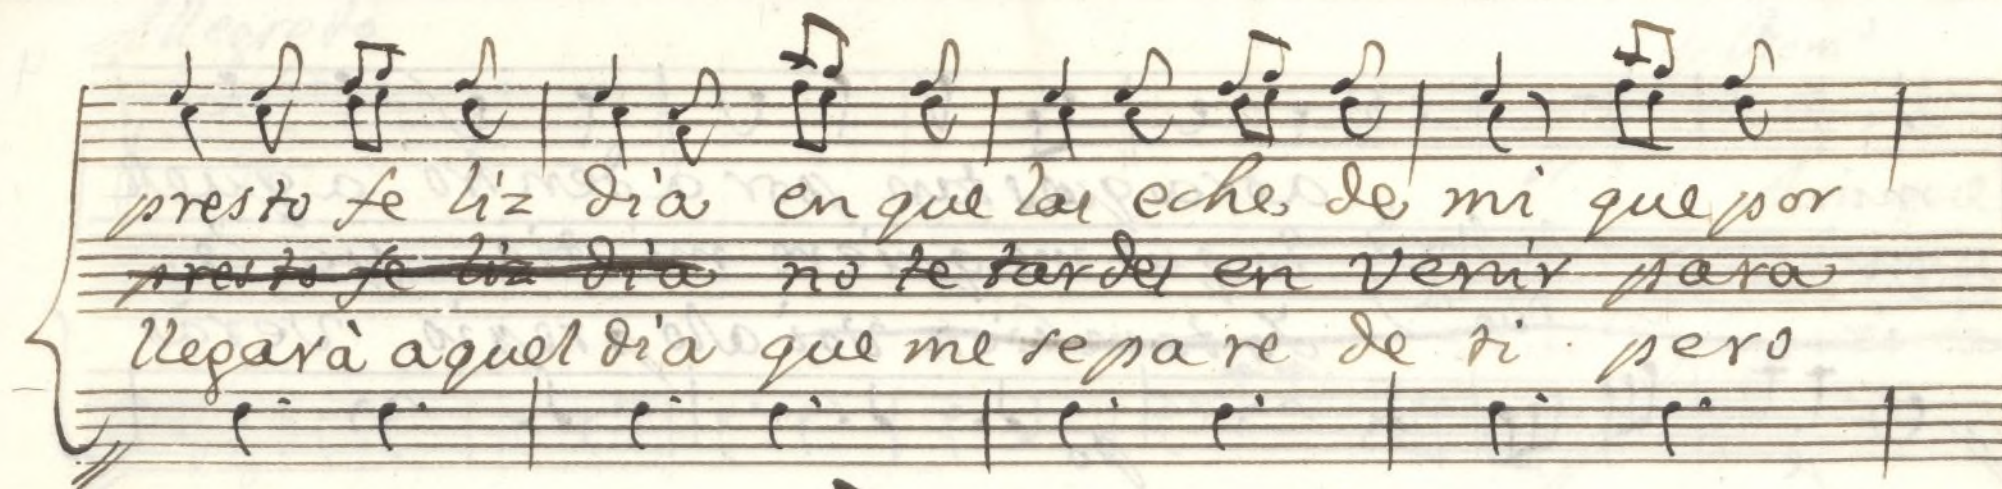 presto fe liz dia en que las eche de mi que por
presto fe liz dia no te tardes en venir para
llegarà aquel dia que me separe de ti pero